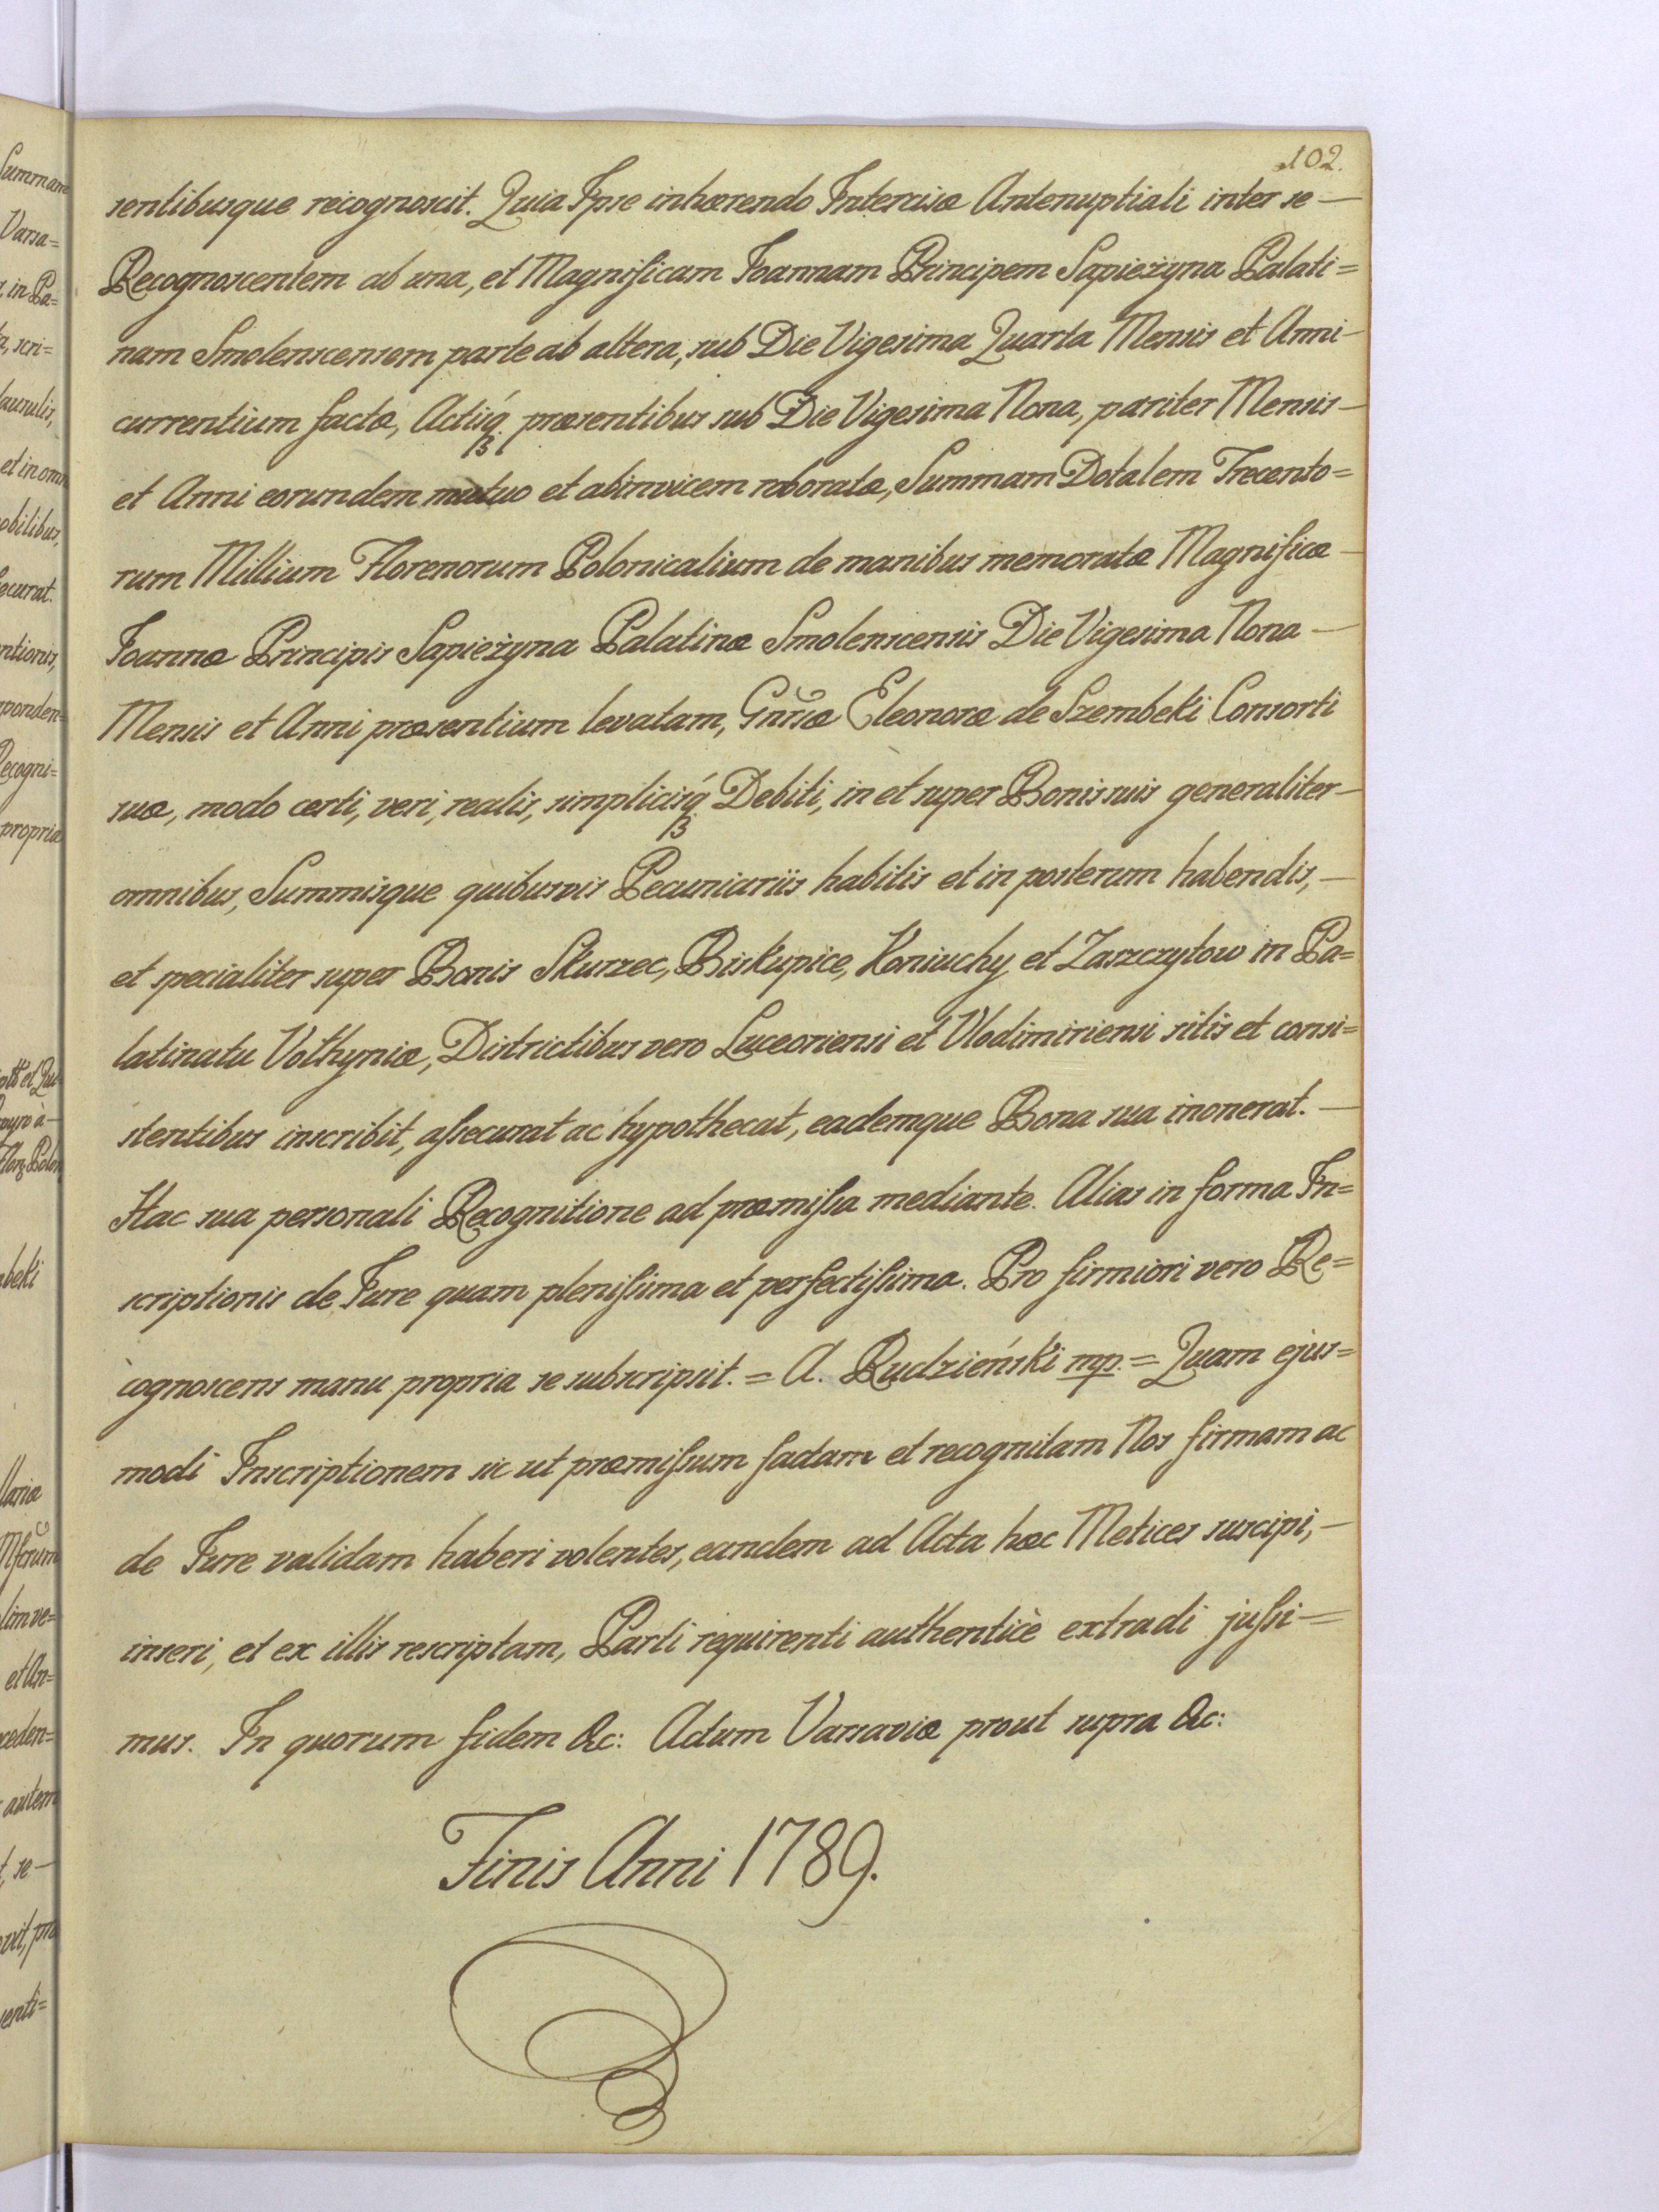 102.
sentibusque recognoscit. Quia Ipse inhærendo Intercisæ Antenuptiali inter se —
Recognoscentem ab una, et Magnificam Joannam Principem Sapieżyna Palati=
nam Smolenscensem parte ab altera, sub Die Vigesima Quarta Mensis et Anni —
currentium factæ, Actisq́ præsentibus sub Die Vigesima Nona, pariter Mensis —
et Anni eorundem mutuo et abinvicem roboratæ, Summam Dotalem Trecento=
rum Millium Florenorum Polonicalium de manibus memoratæ Magnificæ —
Joannæ Principis Sapieżyna Palatinæ Smolenscensis Die Vigesima Nona —
Mensis et Anni præsentium levatam, Gnrsæ Eleonoræ de Szembeki Consorti
suæ, modo certi, veri, realis, simplicisq́ Debiti, in et super Bonis suis generaliter —
omnibus, Summisque quibusvis Pecuniariis habitis et in posterum habendis, —
et specialiter super Bonis Skurzec, Biskupice, Koniuchy et Zaszczytow in Pa=
latinatu Volhyniæ, Districtibus vero Luceoriensi et Vlodimiriensi sitis et consi=
stentibus inscribit, assecurat ac hypothecat, eademque Bona sua inonerat. —
Hac sua personali Recognitione ad præmissa mediante. Alias in forma In=
scriptionis de Jure quam plenissima et perfectissima. Pro firmiori vero Re=
cognoscens manu propria se subscripsit. = A. Rudzieński mp. = Quam ejus=
modi Inscriptionem sic ut præmissum factam et recognitam Nos firmam ac
de Jure validam haberi volentes, eandem ad Acta hæc Metices suscipi, —
inseri, et ex illis rescriptam, Parti requirenti authenticè extradi jussi =
mus. In quorum fidem &c: Actum Varsaviæ prout supra &c:
Finis Anni 1789.